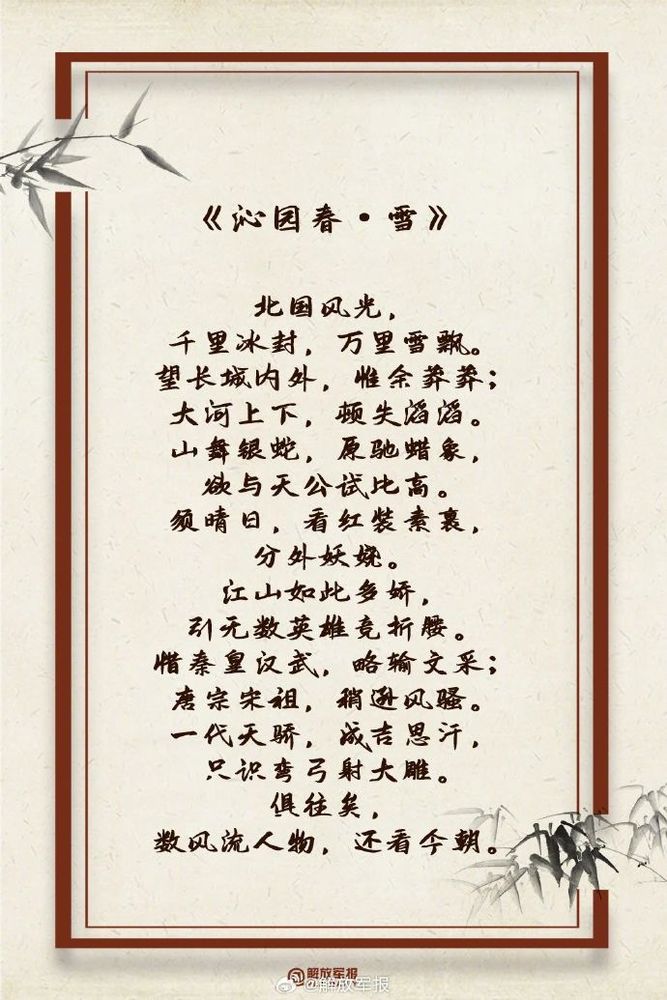 《沁园春·雪》
北国风光，
千里冰封，万里雪飘。
望长城内外，惟余莽莽；
大河上下，顿失滔滔。
山舞银蛇，原驰蜡象，
欲与天公试比高。
须晴日，看红装素裹，
分外妖娆。
江山如此多娇，
引无数英雄竞折腰。
惜秦皇汉武，略输文采；
唐宗宋祖，稍逊风骚。
一代天骄，成吉思汗，
只识弯弓射大雕。
俱往矣，
数风流人物，还看今朝。
解放军报
@解放军报